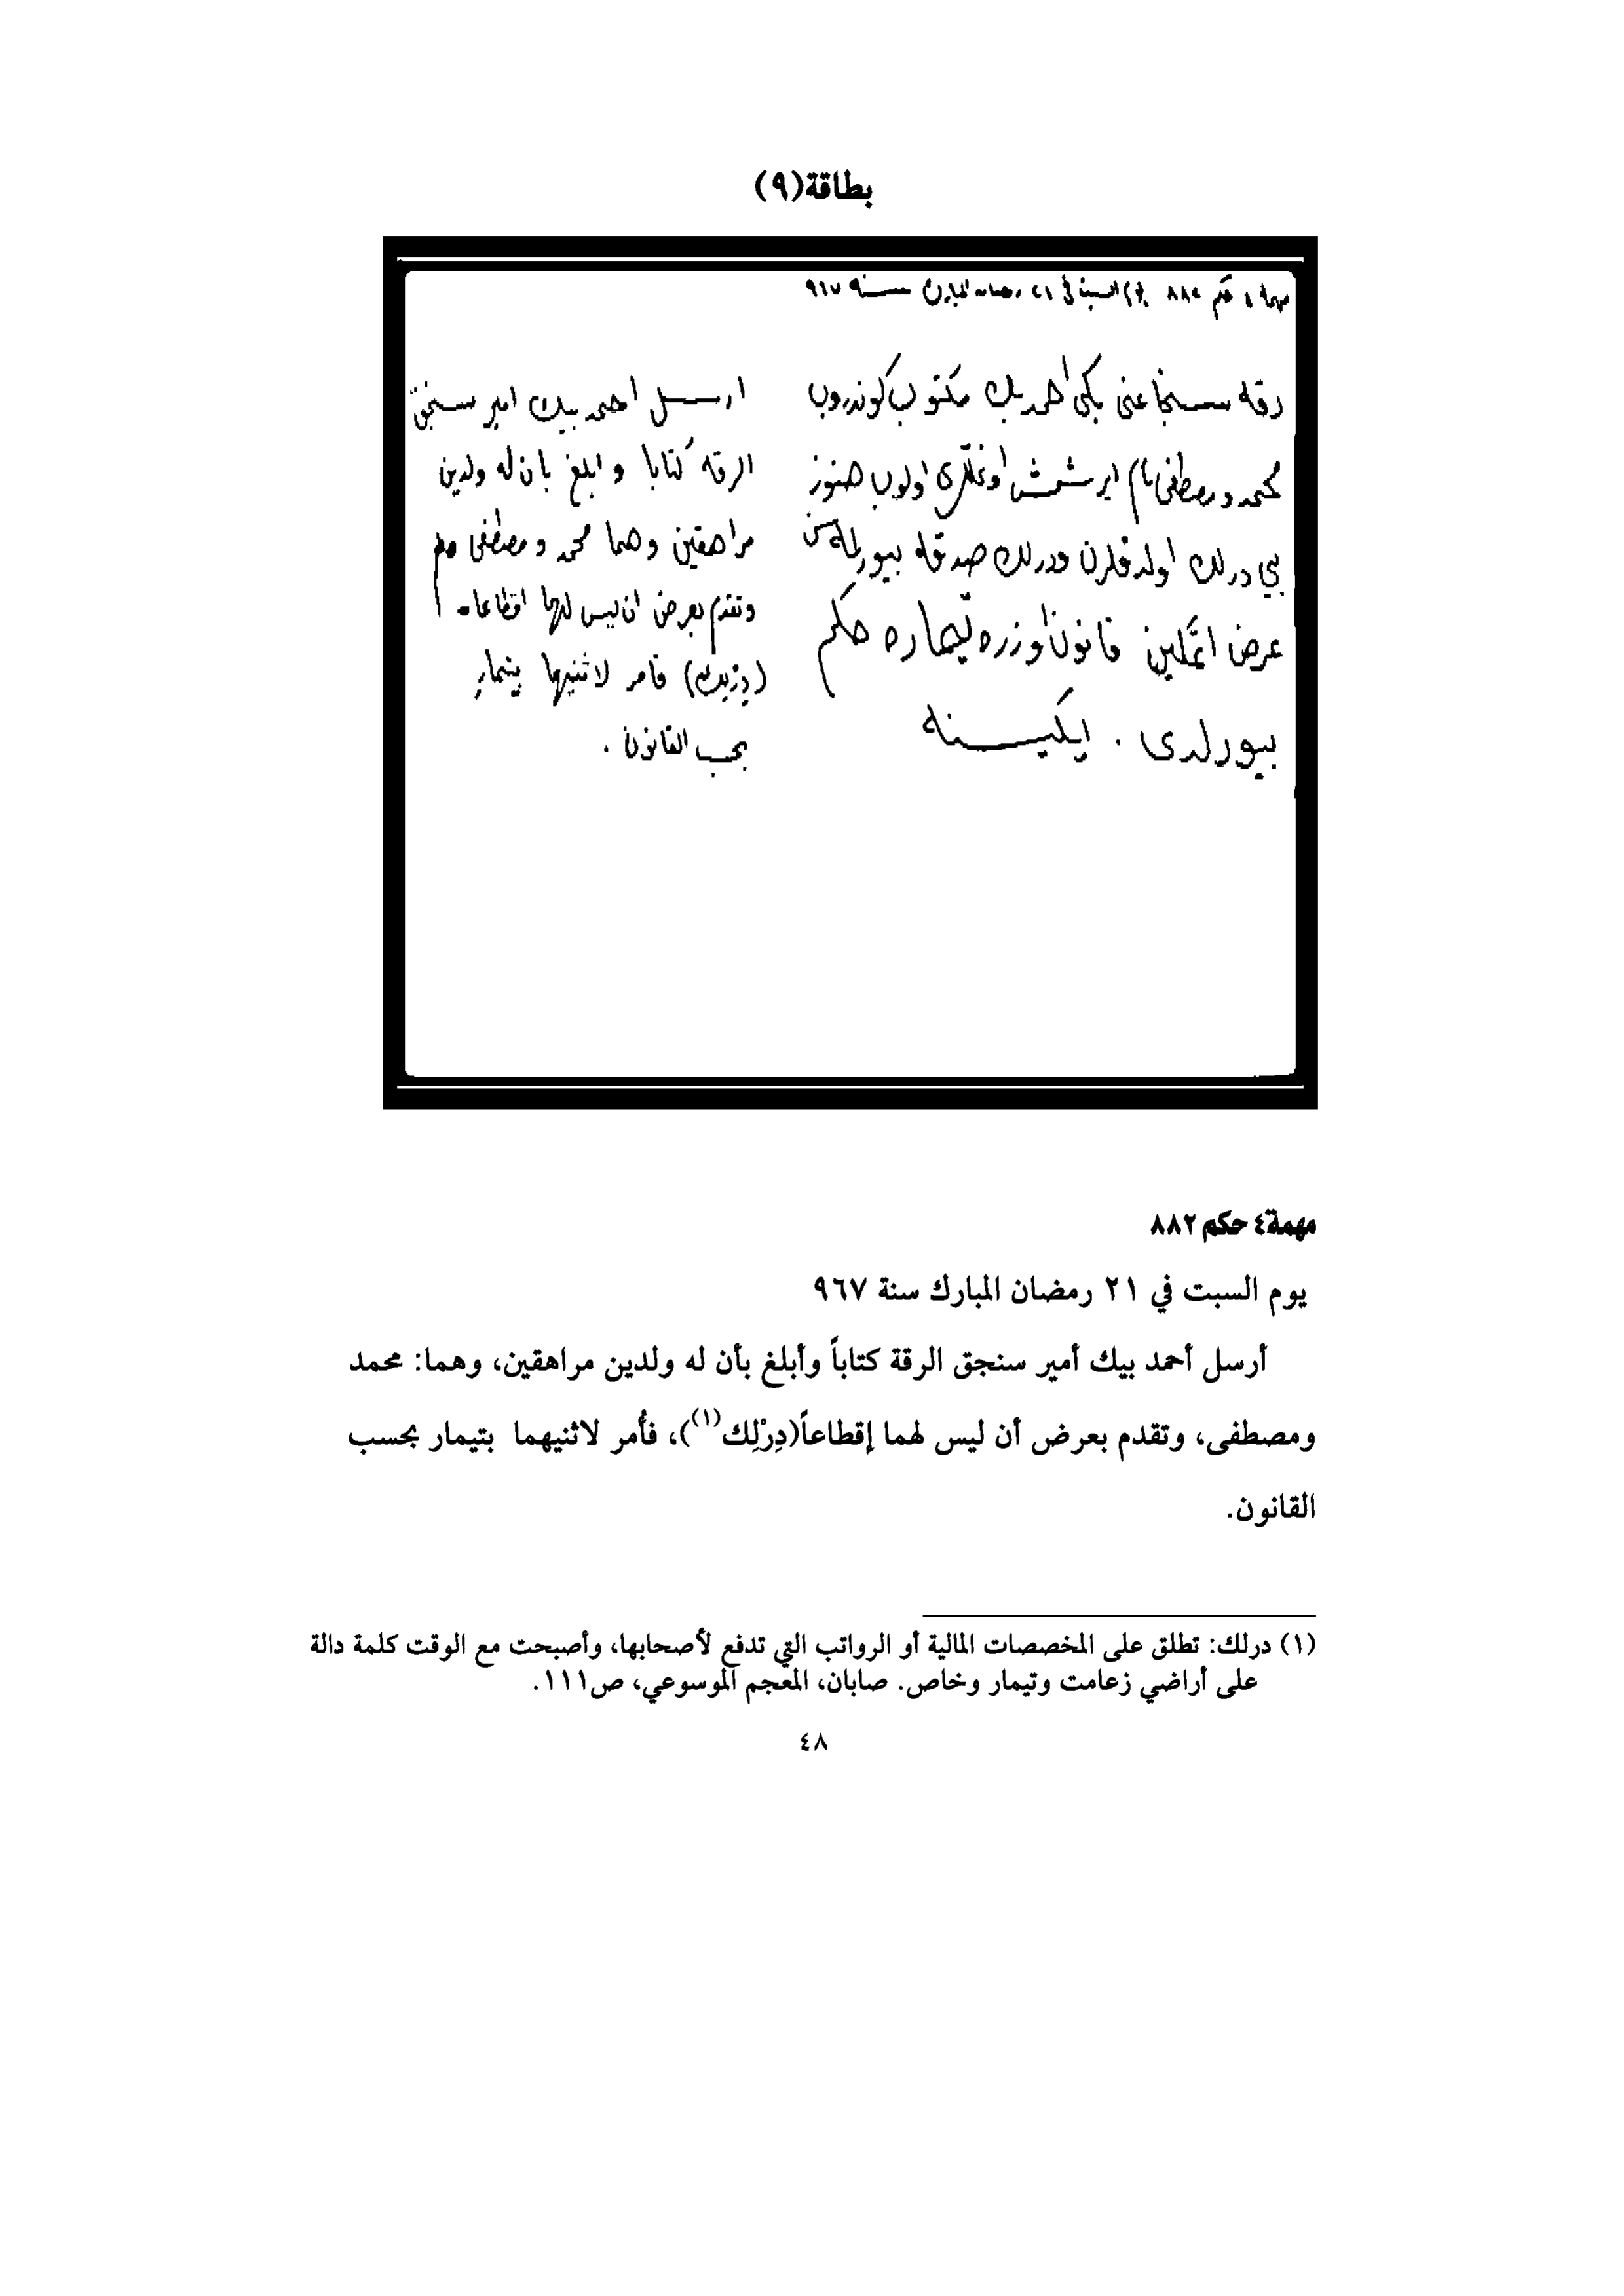 بطاقة(٩)
مهمة ٤ حكم ٨٨٢ يوم السبت في ٢١ رمضان المبارك سنة ٩٦٧
رقه سنجاغی بكی احمد بك مكتوب كوندروب
محمد و مصطفى نام ايرشمش اوغللری اولوب هنوز
بی درلك اولدقلرن درلك صدقه بيورلمه سن
عرض اتمكين قانون اوزره تيماره حكم
بيورلدی . ايكيسنه
ارسل احمد بيك امير سنجق
الرقه كتابا و ابلغ بان له ولدين
مراهقين وهما محمد و مصطفى
وتقدم بعرض ان ليس لهما اقطاعا
(ديزليك) فامر لاثنيهما بتيمار
بحسب القانون .
مهمة٤ حكم ٨٨٢
يوم السبت في ٢١ رمضان المبارك سنة ٩٦٧
أرسل أحمد بيك أمير سنجق الرقة كتاباً وأبلغ بأن له ولدين مراهقين، وهما: محمد
ومصطفى، وتقدم بعرض أن ليس لهما إقطاعاً(دِرْلِك(١))، فأُمر لاثنيهما بتيمار بحسب
القانون.
(١) درلك: تطلق على المخصصات المالية أو الرواتب التي تدفع لأصحابها، وأصبحت مع الوقت كلمة دالة
على أراضي زعامت وتيمار وخاص. صابان، المعجم الموسوعي، ص١١١.
٤٨